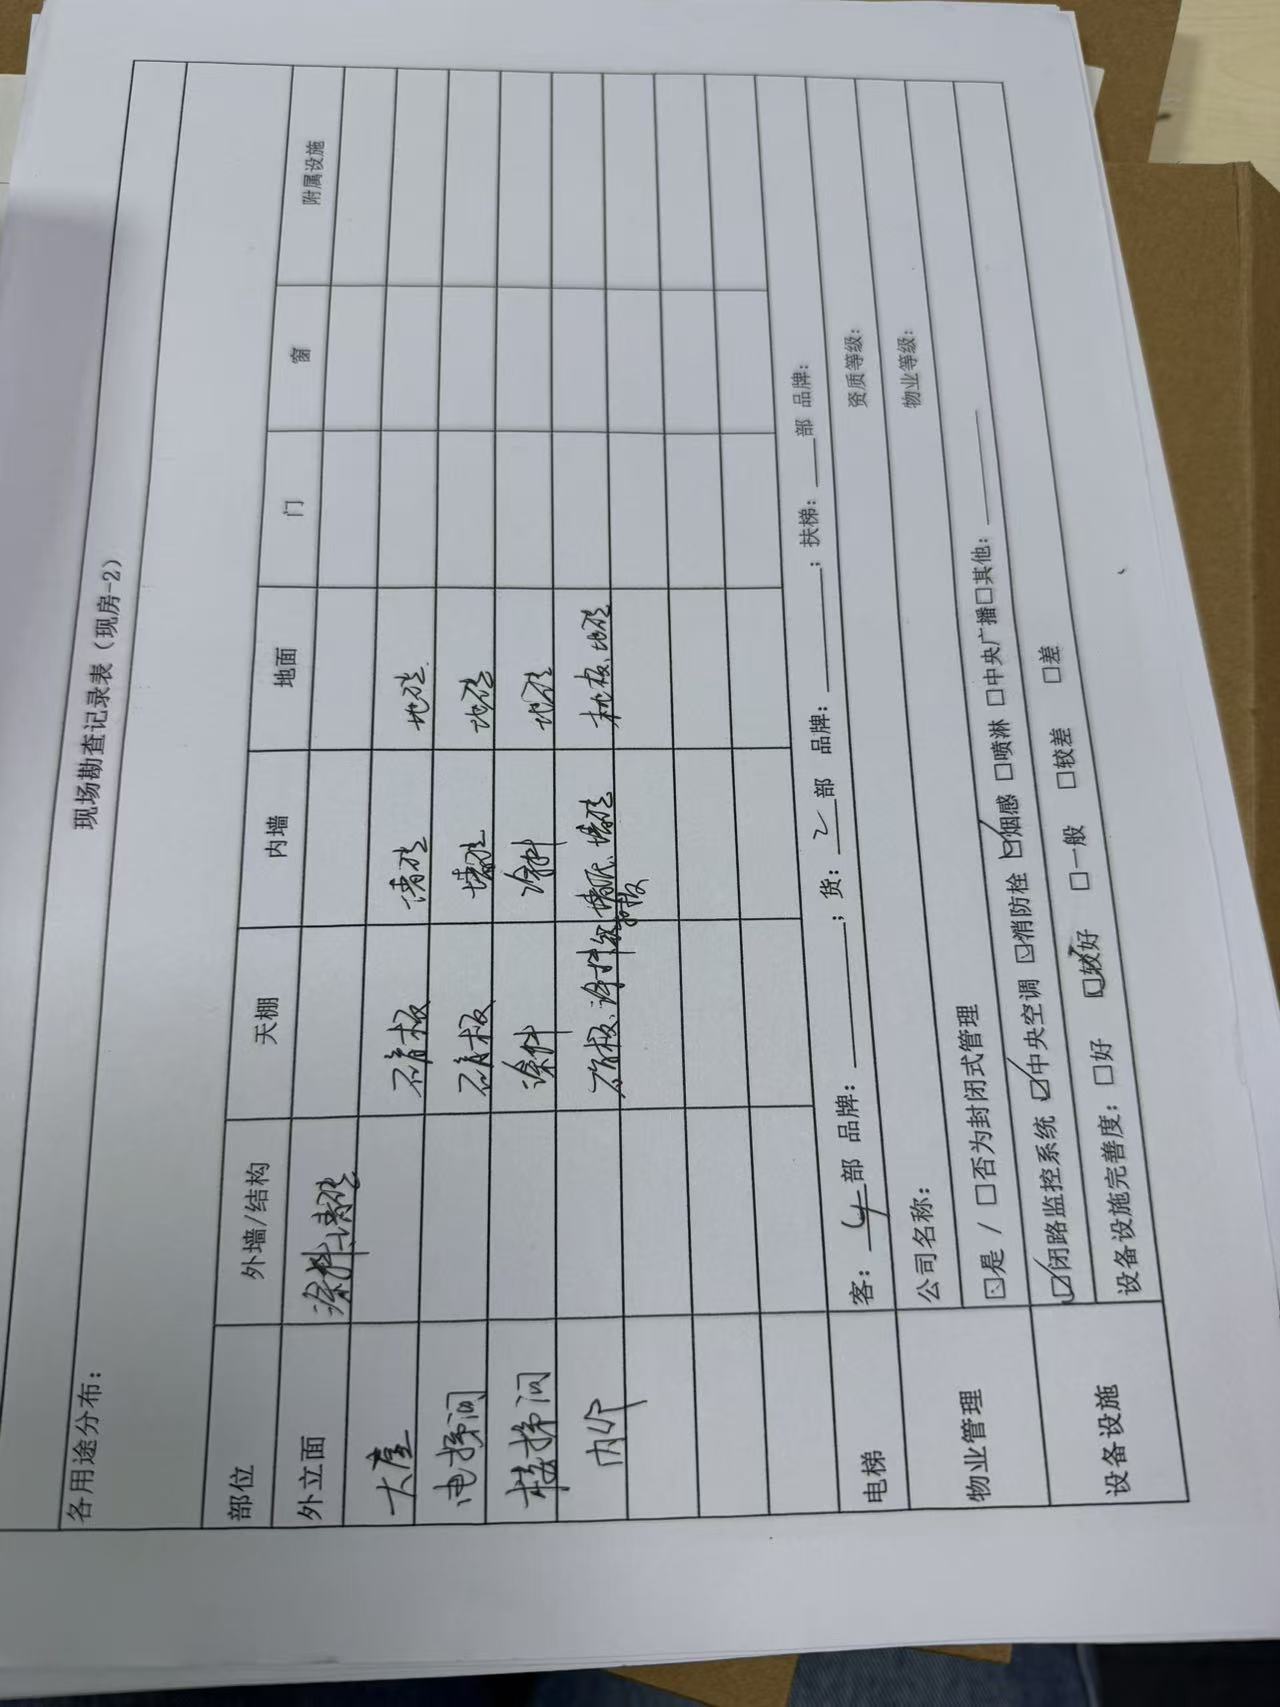 现场勘查记录表（现房-2）
各用途分布：
部位 外墙/结构 天棚 内墙 地面 门 窗 附属设施
外立面 涂料、墙砖
大堂 石膏板 墙砖 地砖
电梯间 石膏板 墙砖 地砖
楼梯间 涂料 涂料 地砖
内户 石膏板、涂料 扣板 墙纸、墙砖 木地板、地砖
电梯 客：4部 品牌：；货：2部 品牌：；扶梯：部 品牌：
物业管理 公司名称： 资质等级：
☑是 / ☐否为封闭式管理 物业等级：
设备设施 ☑闭路监控系统 ☑中央空调 ☑消防栓 ☑烟感 ☐喷淋 ☐中央广播 ☐其他：
设备设施完善度：☐好 ☑较好 ☐一般 ☐较差 ☐差